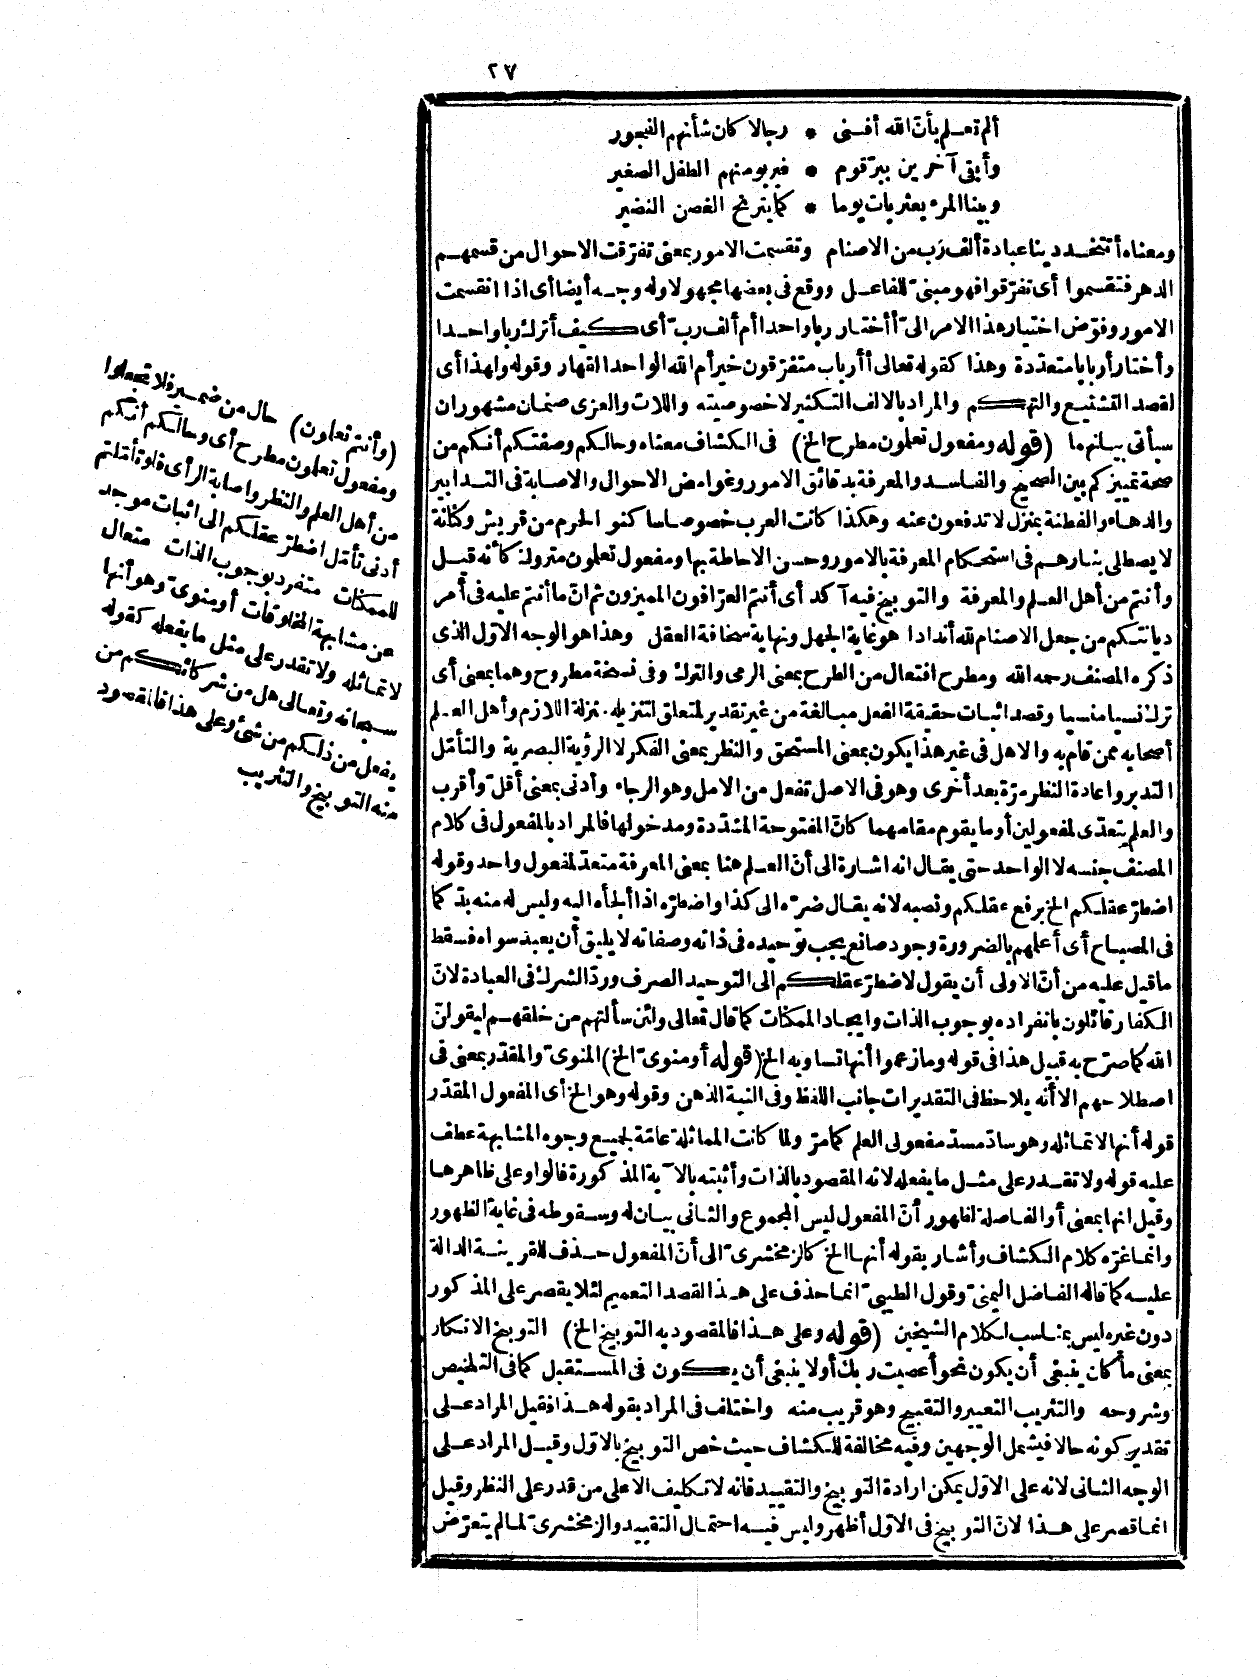 ٢٧
ألم تعلم بأنّ الله أفنى * رجالا كان شأنهم الفجور
وأبقى آخرين ببرّ قوم * فيربو منهم الطفل الصغير
وبينا المرء يعثر بات يوما * كما يترنح الغصن النضير
ومعناه أتتخذ دينا عبادة ألف رب من الاصنام وتقسمت الامور بمعنى تفرّقت الاحوال من قسمهم
الدهر فتقسموا أى تفرّقوا فهو مبنىّ للفاعل ووقع فى بعضها مجهولا وله وجه أيضا أى اذا انقسمت
الامور وفوّض اختيار هذا الامر الىّ أأختار ربا واحدا أم ألف ربّ أى كيف أترك ربا واحدا
وأختار أربابا متعدّدة وهذا كقوله تعالى أأرباب متفرّقون خير أم الله الواحد القهار وقوله ولهذا أى
لقصد التشنيع والتهكم والمراد بالالف التكثير لا خصوصيته واللات والعزى صنمان مشهوران
سيأتى بيانهما (قوله ومفعول تعلمون مطرح الخ) فى الكشاف معناه وحالكم وصفتكم أنكم من
صحة تمييزكم بين الصحيح والفاسد والمعرفة بدقائق الامور وغوامض الاحوال والاصابة فى التدابير
والدهاء والفطنة بمنزل لا تدفعون عنه وهكذا كانت العرب خصوصا ساكنو الحرم من قريش وكنانة
لا يصطلى بنارهم فى استحكام المعرفة بالامور وحسن الاحاطة بها ومفعول تعلمون متروك كأنه قيل
وأنتم من أهل العلم والمعرفة والتوبيخ فيه آكد أى أنتم العرّافون المميزون ثم انّ ما أنتم عليه فى أمر
ديانتكم من جعل الاصنام لله أندادا هو غاية الجهل ونهاية سخافة العقل وهذا هو الوجه الاوّل الذى
ذكره المصنف رحمه الله ومطرح افتعال من الطرح بمعنى الرمى والترك وفى نسخة مطروح وهما بمعنى أى
ترك نسيا منسيا وقصد اثبات حقيقة الفعل مبالغة من غير تقدير لمتعلق لتنزيله منزلة اللازم وأهل العلم
أصحابه ممن قام به والاهل فى غير هذا يكون بمعنى المستحق والنظر بمعنى الفكر لا الرؤية البصرية والتأمّل
التدبر واعادة النظر مرّة بعد أخرى وهو فى الاصل تفعل من الامل وهو الرجاء وأدنى بمعنى أقلّ وأقرب
والعلم يتعدّى لمفعولين أو ما يقوم مقامهما كانّ المفتوحة المشدّدة ومدخولها فالمراد بالمفعول فى كلام
المصنف جنسه لا الواحد حتى يقال انه اشارة الى أنّ العلم هنا بمعنى المعرفة متعدّ لمفعول واحد وقوله
اضطرّ عقلكم الخ برفع عقلكم ونصبه لانه يقال ضرّه الى كذا واضطرّه اذا ألجأه اليه وليس له منه بدّ كما
فى المصباح أى أعلمهم بالضرورة وجود صانع يجب توحيده فى ذاته وصفاته لا يليق أن يعبد سواه فسقط
ما قيل عليه من أنّ الاولى أن يقول لاضطرّ عقلكم الى التوحيد الصرف وردّ الشرك فى العبادة لانّ
الكفار قائلون بانفراده بوجوب الذات وايجاد الممكنات كما قال تعالى ولئن سألتهم من خلقهم ليقولنّ
الله كما صرّح به قبيل هذا فى قوله وما زعموا أنها تساويه الخ (قوله أو منوىّ الخ) المنوىّ والمقدّر بمعنى فى
اصطلاحهم الا أنه يلاحظ فى التقديرات جانب اللفظ وفى النية الذهن وقوله وهو الخ أى المفعول المقدّر
قوله أنها لا تماثله وهو سادّ مسدّ مفعولى العلم كما مرّ ولما كانت المماثلة عامّة لجميع وجوه المشابهة عطف
عليه قوله ولا تقدر على مثل ما يفعله لانه المقصود بالذات وأثبته بالآية المذكورة فالواو على ظاهرها
وقيل انها بمعنى أو الفاصلة لظهور أنّ المفعول ليس المجموع والثانى بيان له وسقوطه فى غاية الظهور
وانما غرّه كلام الكشاف وأشار بقوله أنها الخ كالزمخشرىّ الى أنّ المفعول حذف للقرينة الدالة
عليه كما قاله الفاضل اليمنىّ وقول الطيبىّ انما حذف على هذا القصد التعميم لئلا يقصر على المذكور
دون غيره ليس بمناسب لكلام الشيخين (قوله وعلى هذا فالمقصود به التوبيخ الخ) التوبيخ الانكار
بمعنى ما كان ينبغى أن يكون نحو أعصيت ربك أو لا ينبغى أن يكون فى المستقبل كما فى التلخيص
وشروحه والتثريب التعيير والتقبيح وهو قريب منه واختلف فى المراد بقوله هذا فقيل المراد على
تقدير كونه حالا فيشمل الوجهين وفيه مخالفة للكشاف حيث خص التوبيخ بالاوّل وقيل المراد على
الوجه الثانى لانه على الاوّل يمكن ارادة التوبيخ والتقييد فانه لا تكليف الا على من قدر على النظر وقيل
انما قصر على هذا لانّ التوبيخ فى الاوّل أظهر وليس فيه احتمال التقييد والزمخشرىّ لما لم يتعرّض
(وأنتم تعلمون) حال من ضمير فلا تجعلوا
ومفعول تعلمون مطرح أى وحالكم أنكم
من أهل العلم والنظر واصابة الرأى فلو تأمّلتم
أدنى تأمّل اضطرّ عقلكم الى اثبات موجد
للممكنات متفرد بوجوب الذات متعال
عن مشابهة المخلوقات أو منوىّ وهو أنها
لا تماثله ولا تقدر على مثل ما يفعله كقوله
سبحانه وتعالى هل من شركائكم من
يفعل من ذلكم من شئ وعلى هذا فالمقصود
منه التوبيخ والتثريب